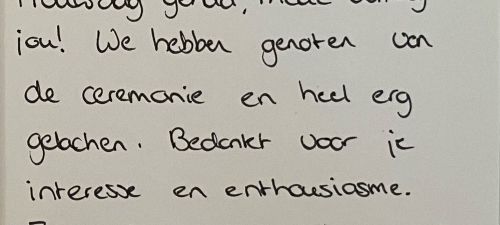 jou! We hebben genoten van
de ceremonie en heel erg
gelachen. Bedankt voor je
interesse en enthousiasme.